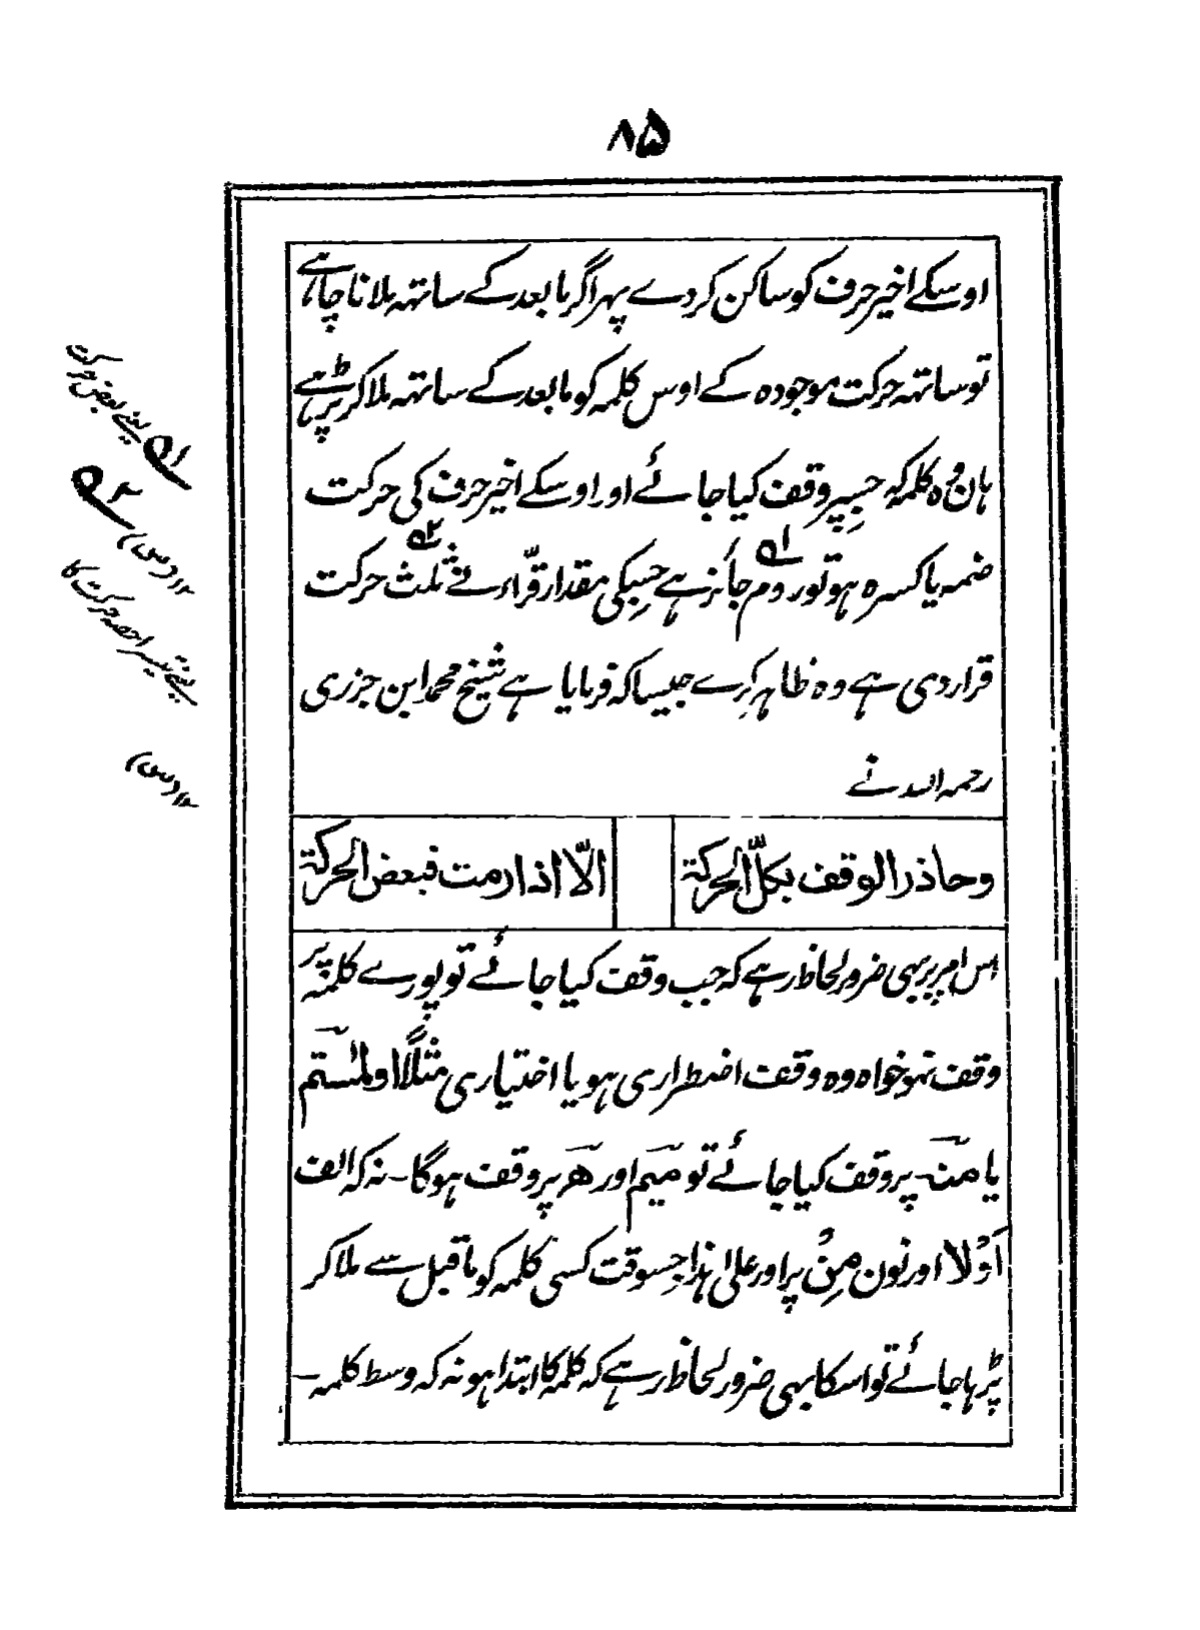 ۸۵
اوسکے اخیر حرف کو ساکن کردے پہر اگر مابعد کے ساتہہ ملانا چاہے
تو ساتہہ حرکت موجودہ کے اوس کلمہ کو مابعد کے ساتہہ ملاکر پڑہے
ہان وہ کلمہ جسپر وقف کیا جائے اور اوسکے اخیر حرف کی حرکت
ضمہ یا کسرہ ہو تو روم ؎۱ جائز ہے جسکی مقدار قرّاء نے ثلث ؎۲ حرکت
قرار دی ہے وہ ظاہر کرے جیسا کہ فرمایا ہے شیخ محمد ابن جزری
رحمہ اللہ نے
وحاذر الوقف بکلّ الحرکة الّا اذا رمت فبعض الحرکة
اس امر پر بہی ضرور لحاظ رہے کہ جب وقف کیا جائے تو پورے کلمہ پر
وقف ہو خواہ وہ وقف اضطراری ہو یا اختیاری مثلًا اولٰمستم
یا منہ پر وقف کیا جائے تو میم اور ہ پر وقف ہوگا ۔ نہ کہ الف
اَوْلا اور نون مِنْ پر اور علیٰ ہذا جسوقت کسی کلمہ کو ماقبل سے ملاکر
پڑہا جائے تو اسکا بہی ضرور لحاظ رہے کہ کلمہ کا ابتدا ہو نہ کہ وسط کلمہ ۔
؎۱ یعنے بعض حرکت
۱۲ (س)
؎۲ یعنے تیسرا حصہ حرکت کا
۱۲ (س)